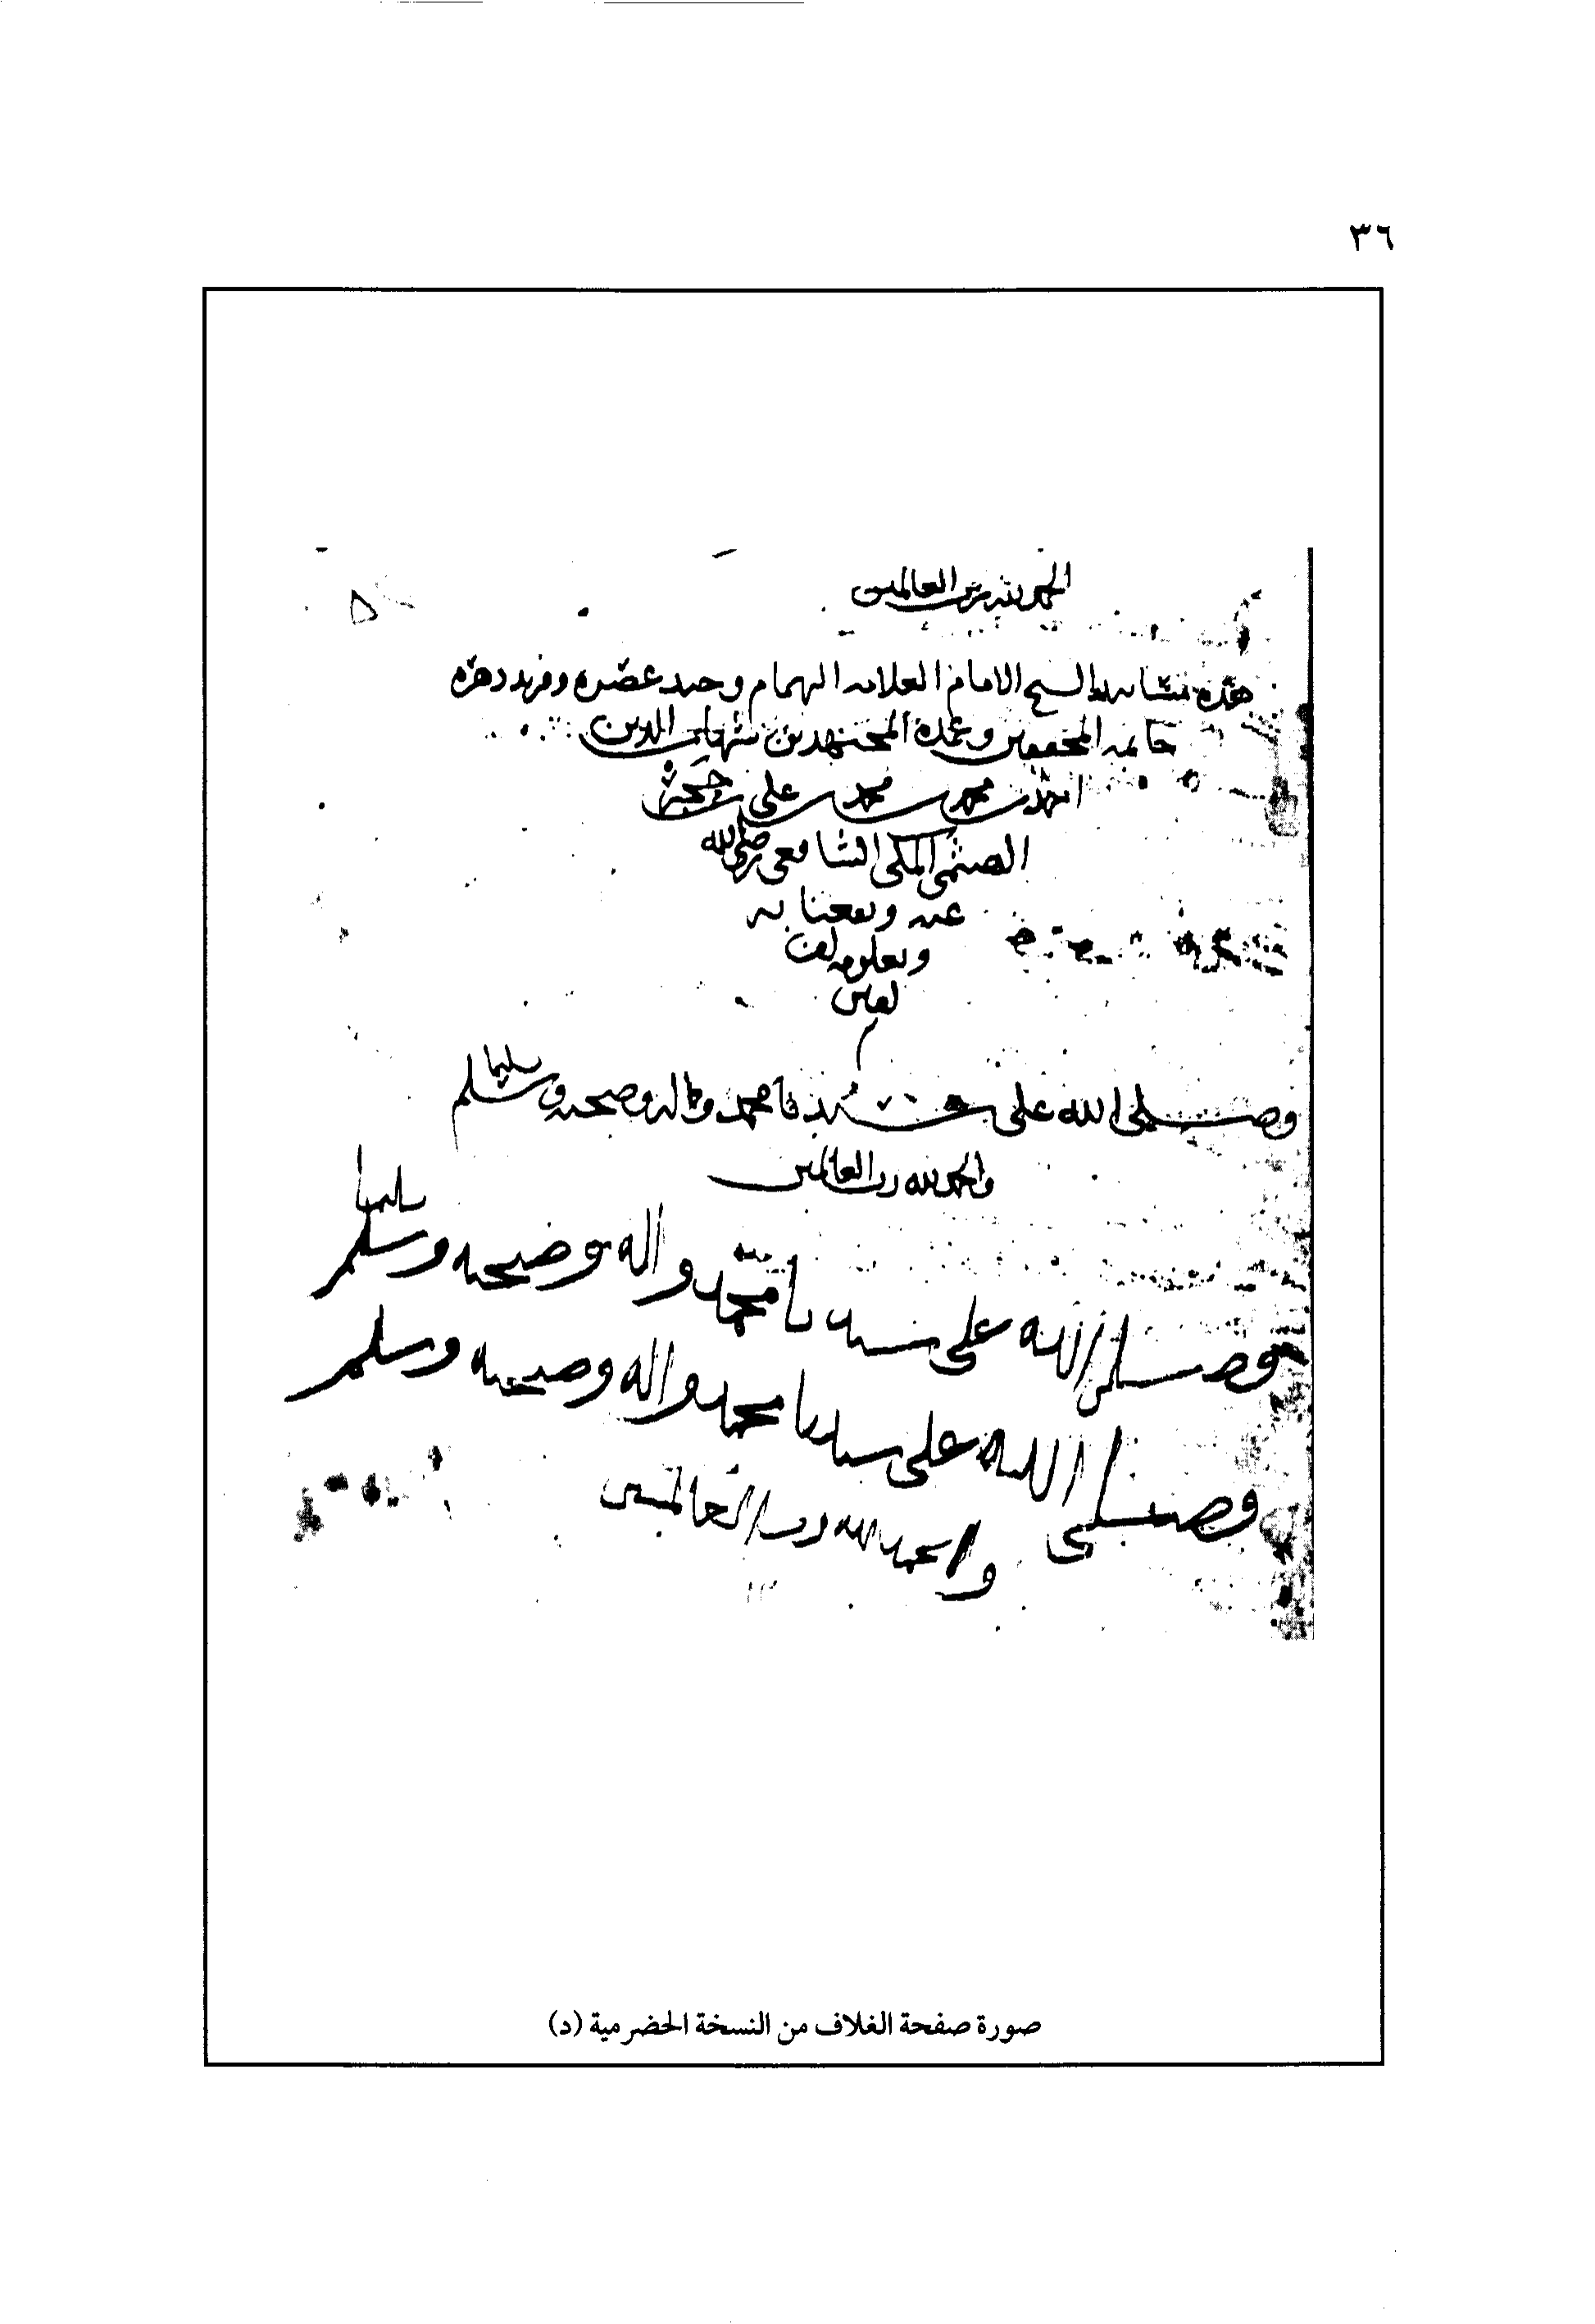 ٣٦
الحمد لله رب العالمين
هذه الشيخ الامام العلامه الهمام وحيد عصره وفريد دهره
خاتمه المحققين وعمدة المجتهدين شهاب الدين
احمد بن محمد بن محمد بن علي بن حجر
الهيتمي المكي الشافعي رضي الله
عنه ونفعنا به
وبعلومه
وصلى الله على سيدنا محمد واله وصحبه وسلم
والحمد لله رب العالمين
وصلى الله على سيدنا محمد واله وصحبه وسلم
وصلى الله على سيدنا محمد واله وصحبه وسلم
والحمد لله رب العالمين
صورة صفحة الغلاف من النسخة الحضرمية (د)